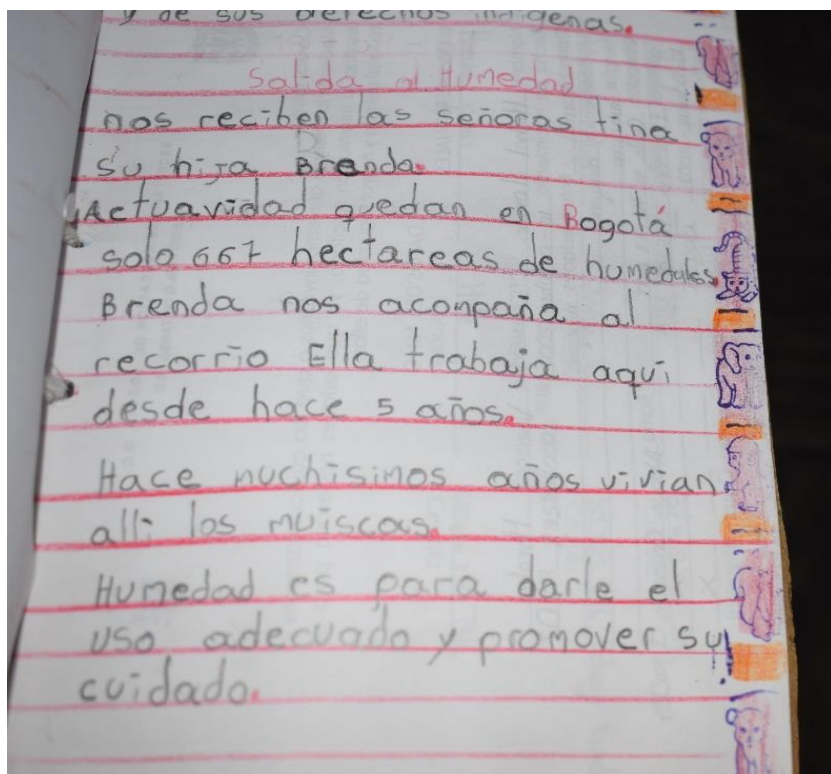 y de sus derechos indigenas.
Salida al Humedad
nos reciben las señoras tina
su hija Brenda.
Actuavidad quedan en Bogotá
solo 667 hectareas de humedales.
Brenda nos acompaña al
recorrio Ella trabaja aqui
desde hace 5 años.
Hace muchisimos años vivian
alli los muiscas.
Humedad es para darle el
uso adecuado y promover su
cuidado.